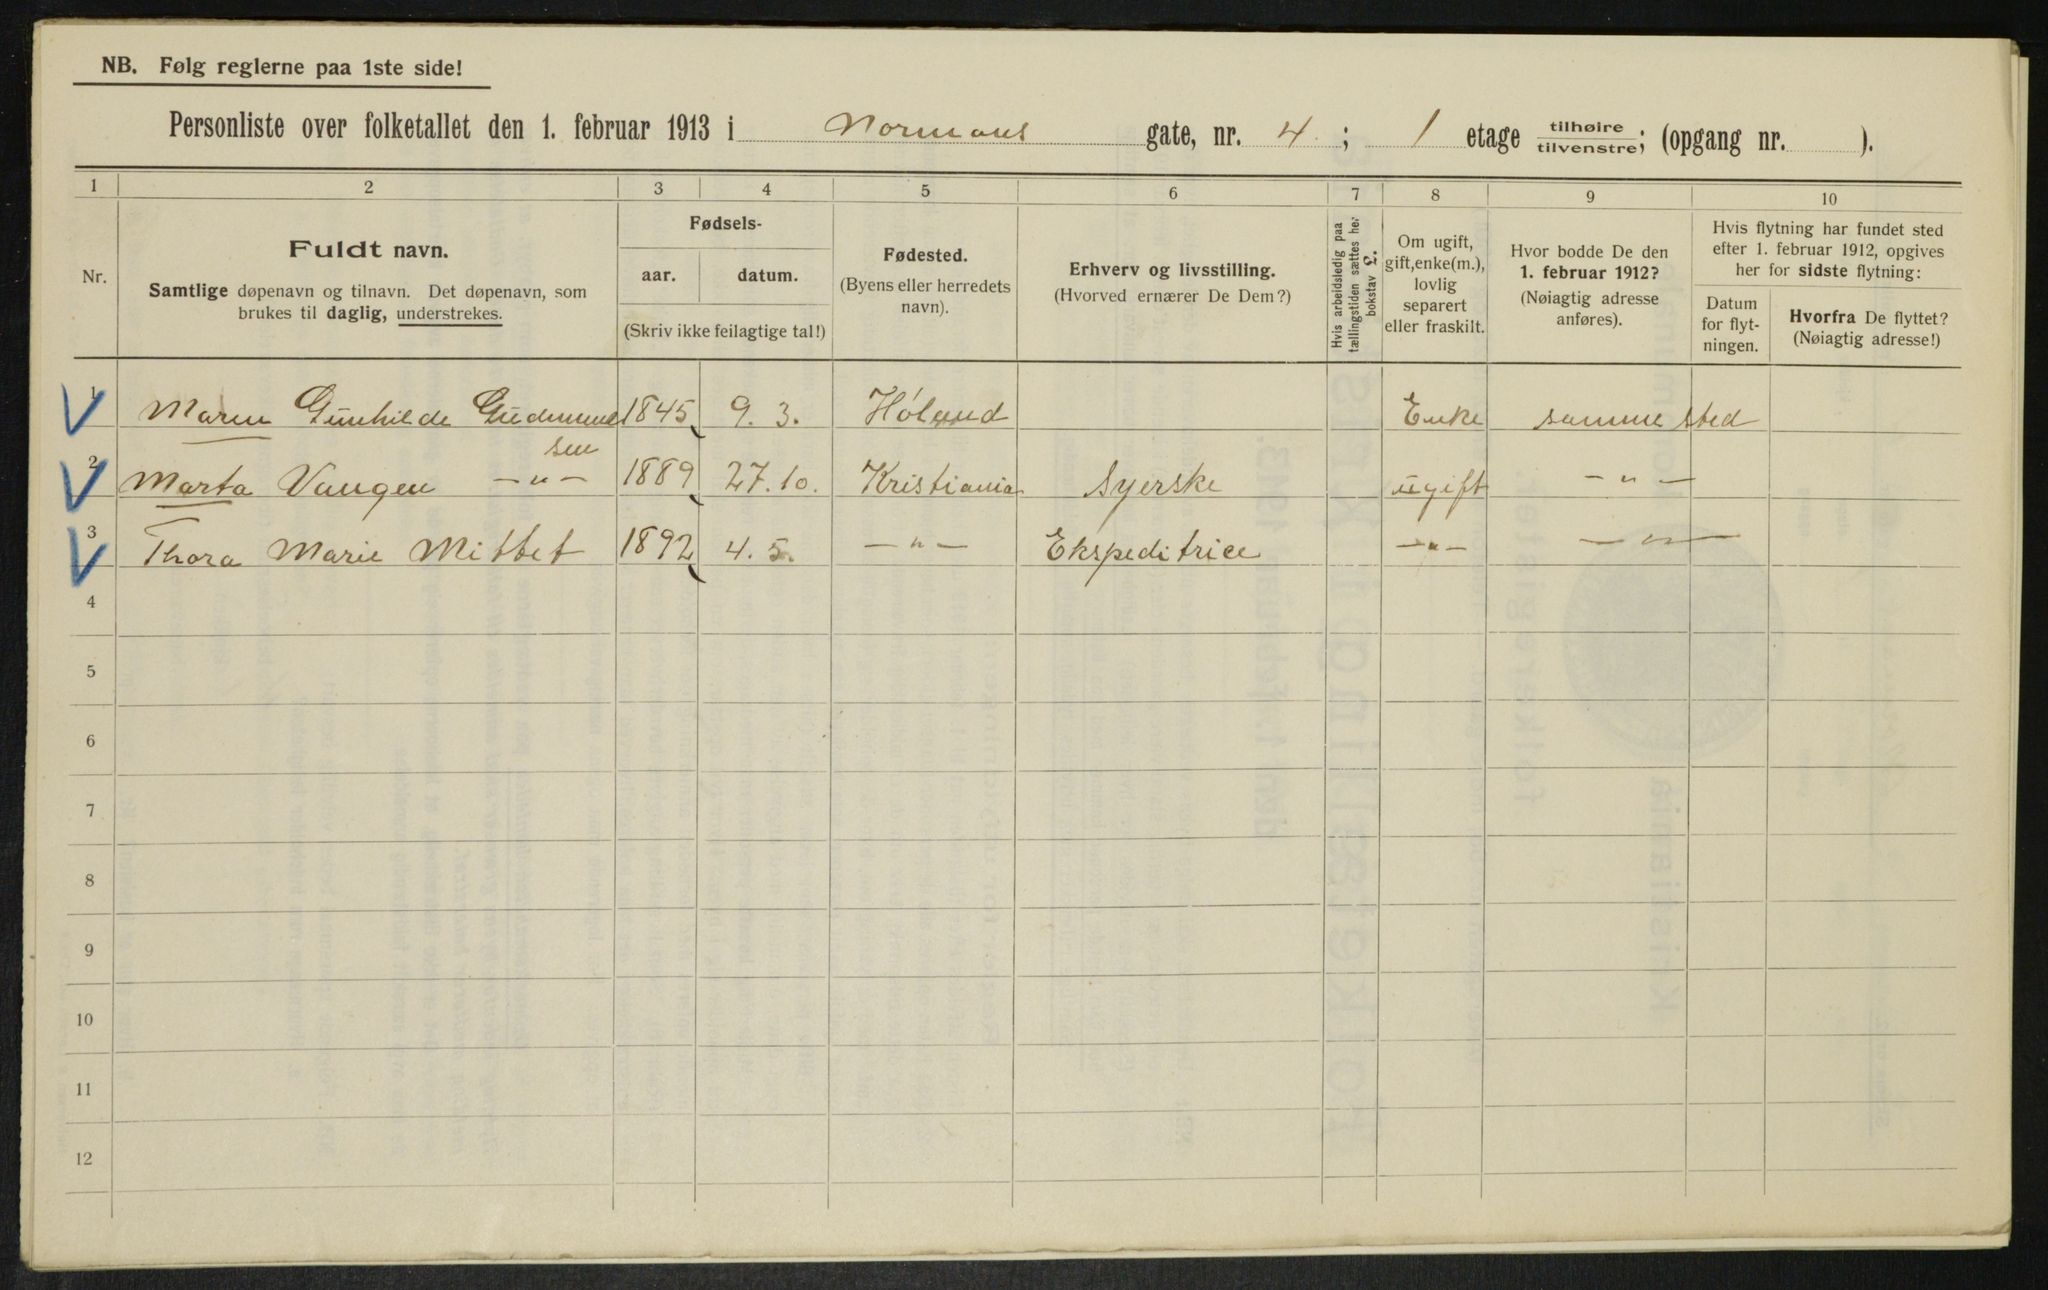 NB. Følg reglerne paa 1ste side!
Personliste over folketallet den 1. februar 1913 i Normans gate, nr. 4 ; 1 etage tilhøire/tilvenstre; (opgang nr. ).
1 2 3 4 5 6 7 8 9 10
Nr.
Fuldt navn.
Samtlige døpenavn og tilnavn. Det døpenavn, som
brukes til daglig, understrekes.
Fødsels-
aar. datum.
(Skriv ikke feilagtige tal!)
Fødested.
(Byens eller herredets
navn).
Erhverv og livsstilling.
(Hvorved ernærer De Dem?)
Hvis arbeidsledig paa
tællingstiden sættes her
bokstav L.
Om ugift,
gift, enke(m.),
lovlig
separert
eller fraskilt.
Hvor bodde De den
1. februar 1912?
(Nøiagtig adresse
anføres).
Hvis flytning har fundet sted
efter 1. februar 1912, opgives
her for sidste flytning:
Datum
for flyt-
ningen.
Hvorfra De flyttet?
(Nøiagtig adresse!)
1 Maren Gunhilde Gudmund 1845 9. 3. Høland Enke samme sted
sen
2 Marta Vangen — " — 1889 27. 10. Kristiania Syerske ugift — " —
3 Thora Marie Mittet 1892 4. 5. — " — Ekspeditrice — " — — " —
4
5
6
7
8
9
10
11
12